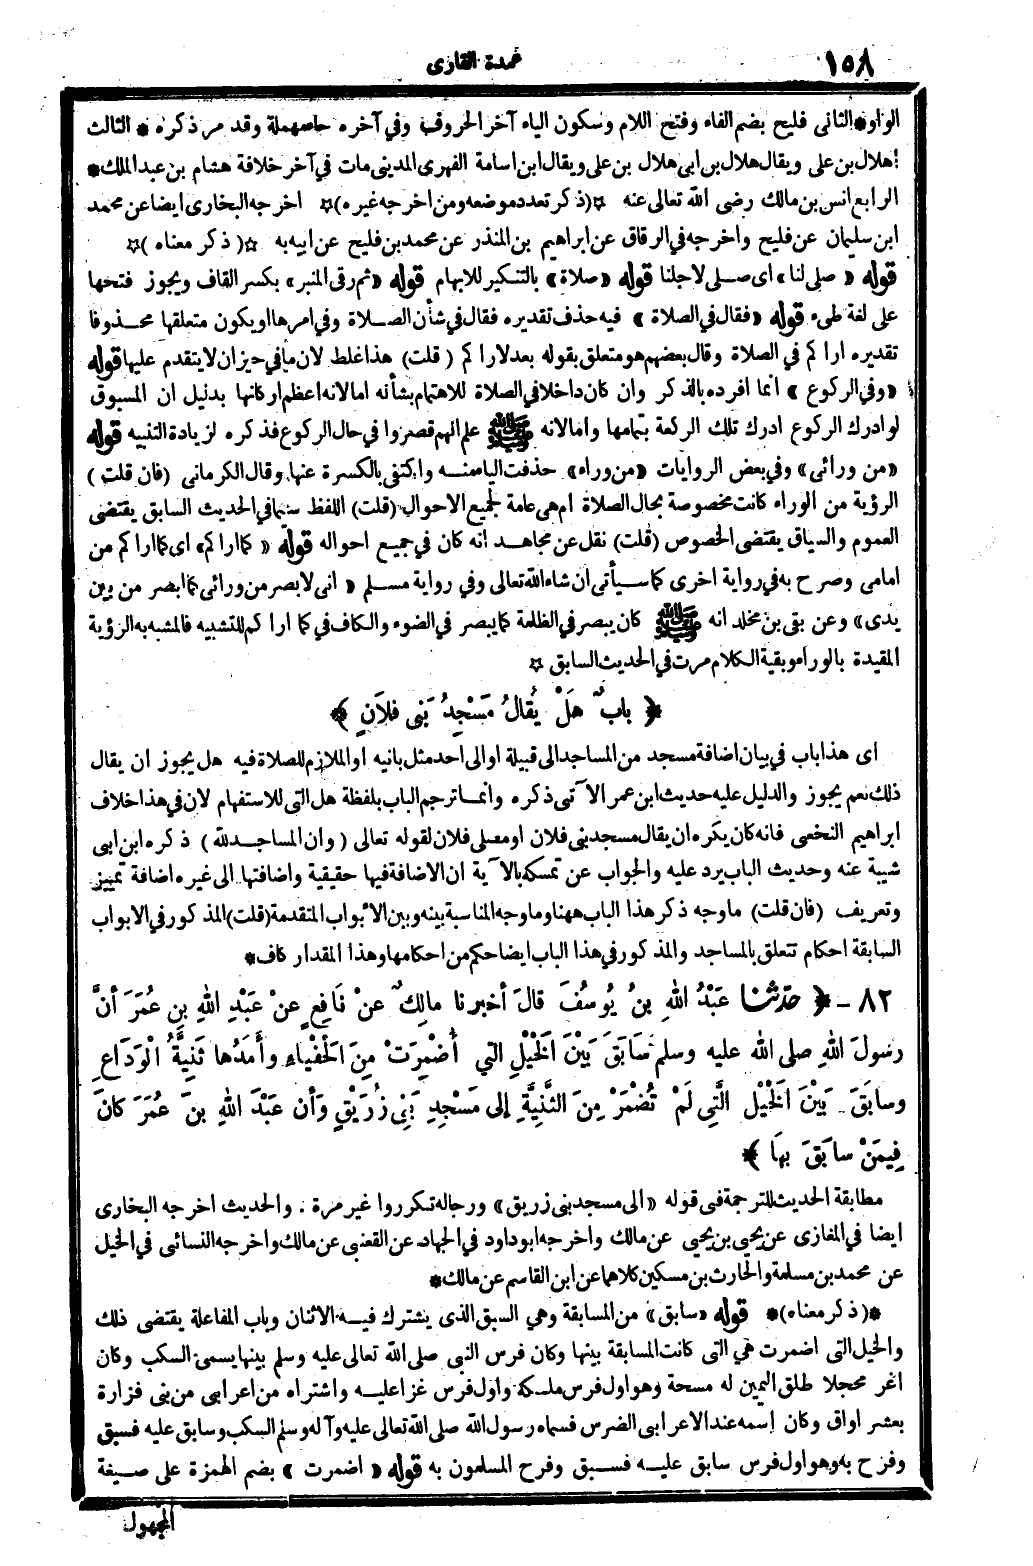 ١٥٨
عمدة القارى
الواو * الثانى فليح بضم الفاء وفتح اللام وسكون الياء آخر الحروف وفي آخره حاء مهملة وقد مر ذكره * الثالث
هلال بن على ويقال هلال بن ابى هلال بن على ويقال ابن اسامة الفهرى المدينى مات في آخر خلافة هشام بن عبد الملك *
الرابع انس بن مالك رضى الله تعالى عنه ☆ (ذكر تعدد موضعه ومن اخرجه غيره) ☆ اخرجه البخارى ايضا عن محمد
ابن سليمان عن فليح واخرجه في الرقاق عن ابراهيم بن المنذر عن محمد بن فليح عن ابيه به ☆ ( ذكر معناه ) ☆
قوله « صلى لنا » اى صلى لاجلنا قوله « صلاة » بالتنكير للابهام قوله « ثم رقى المنبر » بكسر القاف ويجوز فتحها
على لغة طىء قوله « فقال في الصلاة » فيه حذف تقديره فقال في شأن الصلاة وفي امرها او يكون متعلقها محذوفا
تقديره اراكم في الصلاة وقال بعضهم هو متعلق بقوله بعد لاراكم ( قلت ) هذا غلط لان ما في حيز ان لا يتقدم عليها قوله
« وفي الركوع » انما افرده بالذكر وان كان داخلا في الصلاة للاهتمام بشأنه اما لانه اعظم اركانها بدليل ان المسبوق
لو ادرك الركوع ادرك تلك الركعة بتمامها واما لانه ﷺ علم انهم قصروا في حال الركوع فذكره لزيادة التنبيه قوله
« من ورائى » وفي بعض الروايات « من وراء » حذفت الياء منه واكتفى بالكسرة عنها وقال الكرمانى ( فان قلت )
الرؤية من الوراء كانت مخصوصة بحال الصلاة ام هى عامة لجميع الاحوال ( قلت ) اللفظ سيما في الحديث السابق يقتضى
العموم والسياق يقتضى الخصوص ( قلت ) نقل عن مجاهد انه كان في جميع احواله قوله « كما اراكم » اى كما اراكم من
امامى وصرح به في رواية اخرى كما سيأتى ان شاء الله تعالى وفي رواية مسلم « انى لابصر من ورائى كما ابصر من بين
يدى » وعن بقى بن مخلد انه ﷺ كان يبصر في الظلمة كما يبصر في الضوء والكاف في كما اراكم للتشبيه فالمشبه به الرؤية
المقيدة بالوراء وبقية الكلام مرت في الحديث السابق ☆
﴿ بابٌ هَلْ يُقَالُ مَسْجِدُ بَنى فلاَنٍ ﴾
اى هذا باب في بيان اضافة مسجد من المساجد الى قبيلة او الى احد مثل بانيه او الملازم للصلاة فيه هل يجوز ان يقال
ذلك نعم يجوز والدليل عليه حديث ابن عمر الآتى ذكره وانما ترجم الباب بلفظة هل التى للاستفهام لان في هذا خلاف
ابراهيم النخعى فانه كان يكره ان يقال مسجد بنى فلان او مصلى فلان لقوله تعالى ( وان المساجد لله ) ذكره ابن ابى
شيبة عنه وحديث الباب يرد عليه والجواب عن تمسكه بالآية ان الاضافة فيها حقيقية واضافتها الى غيره اضافة تمييز
وتعريف ( فان قلت ) ما وجه ذكر هذا الباب ههنا وما وجه المناسبة بينه وبين الابواب المتقدمة ( قلت ) المذكور في الابواب
السابقة احكام تتعلق بالمساجد والمذكور في هذا الباب ايضا حكم من احكامها وهذا المقدار كاف *
٨٢ - ﴿ حدّثنا عَبْدُ اللهِ بنُ يُوسُفَ قالَ أخبرنا مالِكٌ عنْ نَافِعٍ عنْ عَبْدِ اللهِ بنِ عُمَرَ أنَّ
رسُولَ اللهِ صلى الله عليه وسلم سَابَقَ بَيْنَ الخَيْلِ التي أُضْمِرَتْ مِنَ الحَفْيَاءِ وأَمَدُها ثَنِيَّةُ الْوَدَاعِ
وسابَقَ بَيْنَ الخَيْلِ الَّتِي لَمْ تُضْمَرْ مِنَ الثَّنِيَّةِ إلى مَسْجِدِ بَنِي زُرَيْقٍ وَأن عَبْدَ اللهِ بنَ عُمَرَ كانَ
فِيمَنْ سابَقَ بهَا ﴾
مطابقة الحديث للترجمة فى قوله « الى مسجد بنى زريق » ورجاله تكرروا غير مرة . والحديث اخرجه البخارى
ايضا في المغازى عن يحيى بن يحيى عن مالك واخرجه ابو داود في الجهاد عن القعنبى عن مالك واخرجه النسائى في الخيل
عن محمد بن مسلمة والحارث بن مسكين كلاهما عن ابن القاسم عن مالك *
* ( ذكر معناه ) * قوله « سابق » من المسابقة وهي السبق الذى يشترك فيه الاثنان وباب المفاعلة يقتضى ذلك
والخيل التى اضمرت هي التى كانت المسابقة بينها وكان فرس النبى صلى الله تعالى عليه وسلم بينها يسمى السكب وكان
اغر محجلا طلق اليمين له مسحة وهو اول فرس ملكه واول فرس غزا عليه واشتراه من اعرابى من بنى فزارة
بعشر اواق وكان إسمه عند الاعرابى الضرس فسماه رسول الله صلى الله تعالى عليه وآله وسلم السكب وسابق عليه فسبق
وفرح به وهو اول فرس سابق عليه فسبق وفرح المسلمون به قوله « اضمرت » بضم الهمزة على صيغة
المجهول